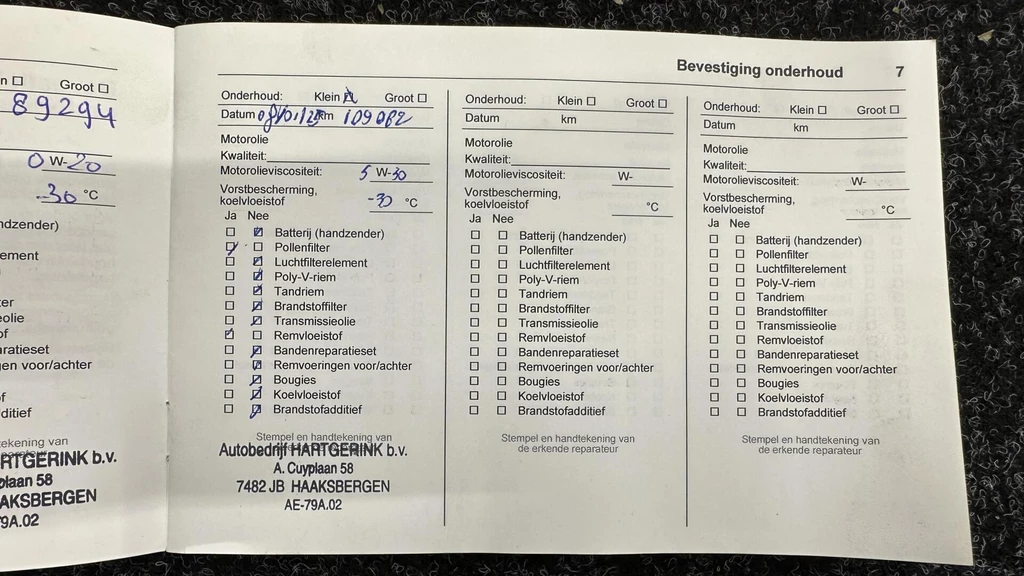 n ☐ Groot ☐
89294
0 W-20
-30 °C
dzender)
ement
er
eolie
of
aratieset
en voor/achter
f
ditief
ekening van
RTGERINK b.v.
plaan 58
AKSBERGEN
9A.02
Bevestiging onderhoud 7
Onderhoud: Klein ☒ Groot ☐
Datum km 109062
Motorolie
Kwaliteit:
Motorolieviscositeit: 5 W-30
Vorstbescherming,
koelvloeistof -30 °C
Ja Nee
☐ ☑ Batterij (handzender)
☑ ☐ Pollenfilter
☐ ☑ Luchtfilterelement
☐ ☑ Poly-V-riem
☐ ☑ Tandriem
☐ ☑ Brandstoffilter
☐ ☑ Transmissieolie
☑ ☐ Remvloeistof
☐ ☑ Bandenreparatieset
☐ ☑ Remvoeringen voor/achter
☐ ☑ Bougies
☐ ☑ Koelvloeistof
☐ ☑ Brandstofadditief
Stempel en handtekening van
Autobedrijf HARTGERINK b.v.
A. Cuyplaan 58
7482 JB HAAKSBERGEN
AE-79A.02
Onderhoud: Klein ☐ Groot ☐
Datum km
Motorolie
Kwaliteit:
Motorolieviscositeit: W-
Vorstbescherming,
koelvloeistof °C
Ja Nee
☐ ☐ Batterij (handzender)
☐ ☐ Pollenfilter
☐ ☐ Luchtfilterelement
☐ ☐ Poly-V-riem
☐ ☐ Tandriem
☐ ☐ Brandstoffilter
☐ ☐ Transmissieolie
☐ ☐ Remvloeistof
☐ ☐ Bandenreparatieset
☐ ☐ Remvoeringen voor/achter
☐ ☐ Bougies
☐ ☐ Koelvloeistof
☐ ☐ Brandstofadditief
Stempel en handtekening van
de erkende reparateur
Onderhoud: Klein ☐ Groot ☐
Datum km
Motorolie
Kwaliteit:
Motorolieviscositeit: W-
Vorstbescherming,
koelvloeistof °C
Ja Nee
☐ ☐ Batterij (handzender)
☐ ☐ Pollenfilter
☐ ☐ Luchtfilterelement
☐ ☐ Poly-V-riem
☐ ☐ Tandriem
☐ ☐ Brandstoffilter
☐ ☐ Transmissieolie
☐ ☐ Remvloeistof
☐ ☐ Bandenreparatieset
☐ ☐ Remvoeringen voor/achter
☐ ☐ Bougies
☐ ☐ Koelvloeistof
☐ ☐ Brandstofadditief
Stempel en handtekening van
de erkende reparateur